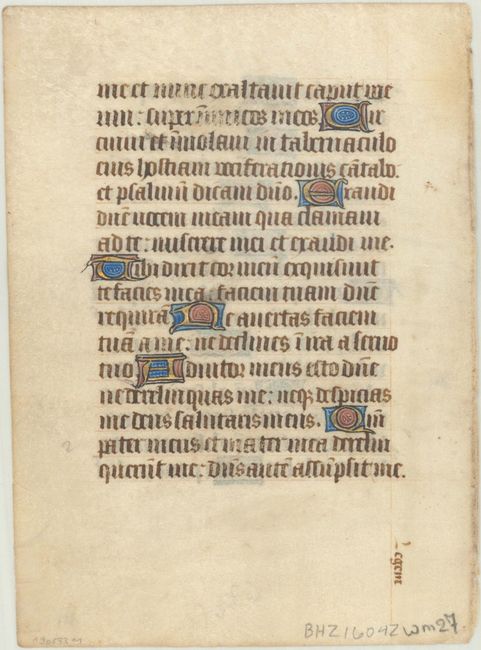 me et nunc exaltavit caput me
um: sup inimicos meos. Cir
cuivi et ĩmolavi in tabernaculo
eius hostiam vociferationis cãtabo.
et psalmũ dicam dño. Exaudi
dñe vocem meam qua clamavi
ad te: miserere mei et exaudi me.
Tibi dixit cor meũ exquisivit
te facies mea: faciem tuam dñe
requirã Ne avertas faciem
tuã a me: ne declines ĩ ira a servo
tuo Adiutor meus esto dñe
ne derelinquas me: neq despicias
me deus salutaris meus. Qm̃
pater meus et mater mea dereli
querũt me: dñs autẽ assũpsit me.
BHZ1604Z wm27.